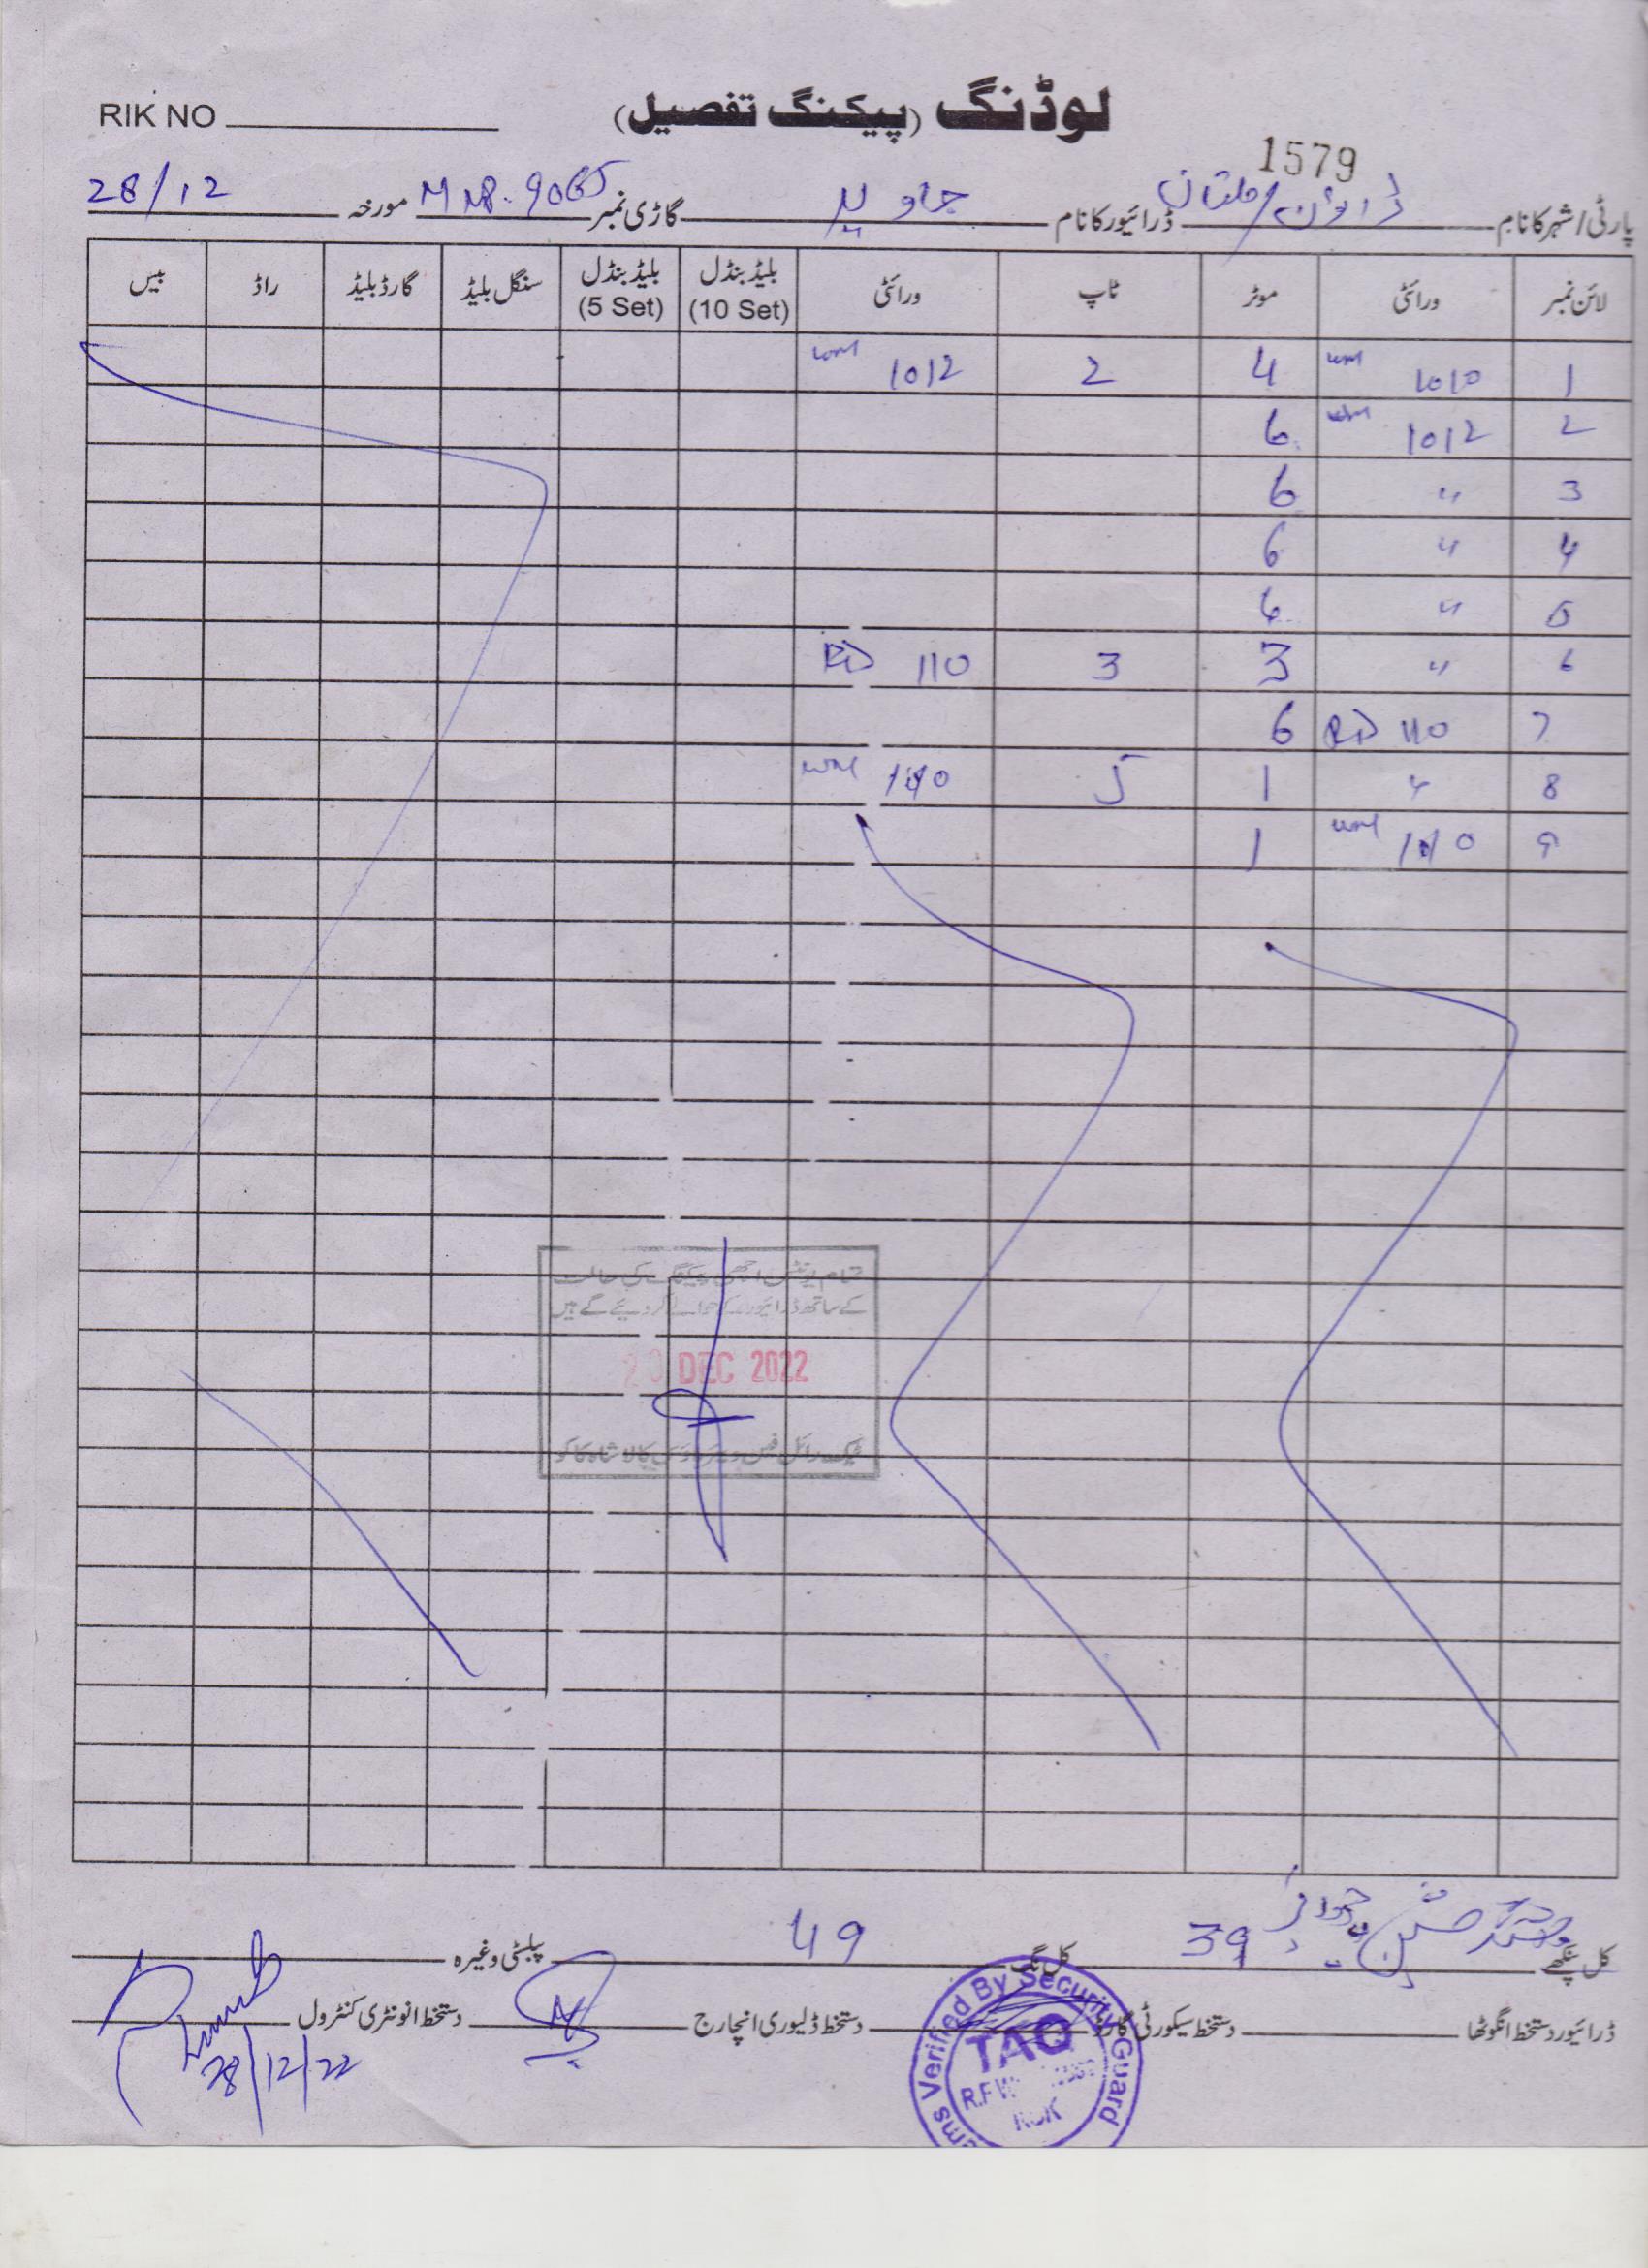 RIK NO
لوڈنگ (پیکنگ تفصیل)
1579
پارٹی/شہر کا نام ملتان ڈرائیور کا نام جاوید گاڑی نمبر 9065 مورخہ 28/12
لائن نمبر ورائٹی موٹر ٹاپ ورائٹی بلیڈ بنڈل (10 Set) بلیڈ بنڈل (5 Set) سنگل بلیڈ گارڈ بلیڈ راڈ بیس
1 1010 4 2 1012
2 1012 6
3 " 6
4 " 6
5 " 6
6 " 3 3 110 RD
7 RD 110 6
8 " 1 5
9 1
تمام یونٹس اچھی پیکنگ کی حالت
کے ساتھ ڈرائیور کے حوالے کر دیئے گئے ہیں
DEC 2022
کل پنکھے 39 کل نگ 49 پبلسٹی وغیرہ
ڈرائیور دستخط انگوٹھا دستخط سیکورٹی گارڈ دستخط ڈلیوری انچارج دستخط انونٹری کنٹرول
28/12/22
Verified By Security Guard
TAQ
R.F